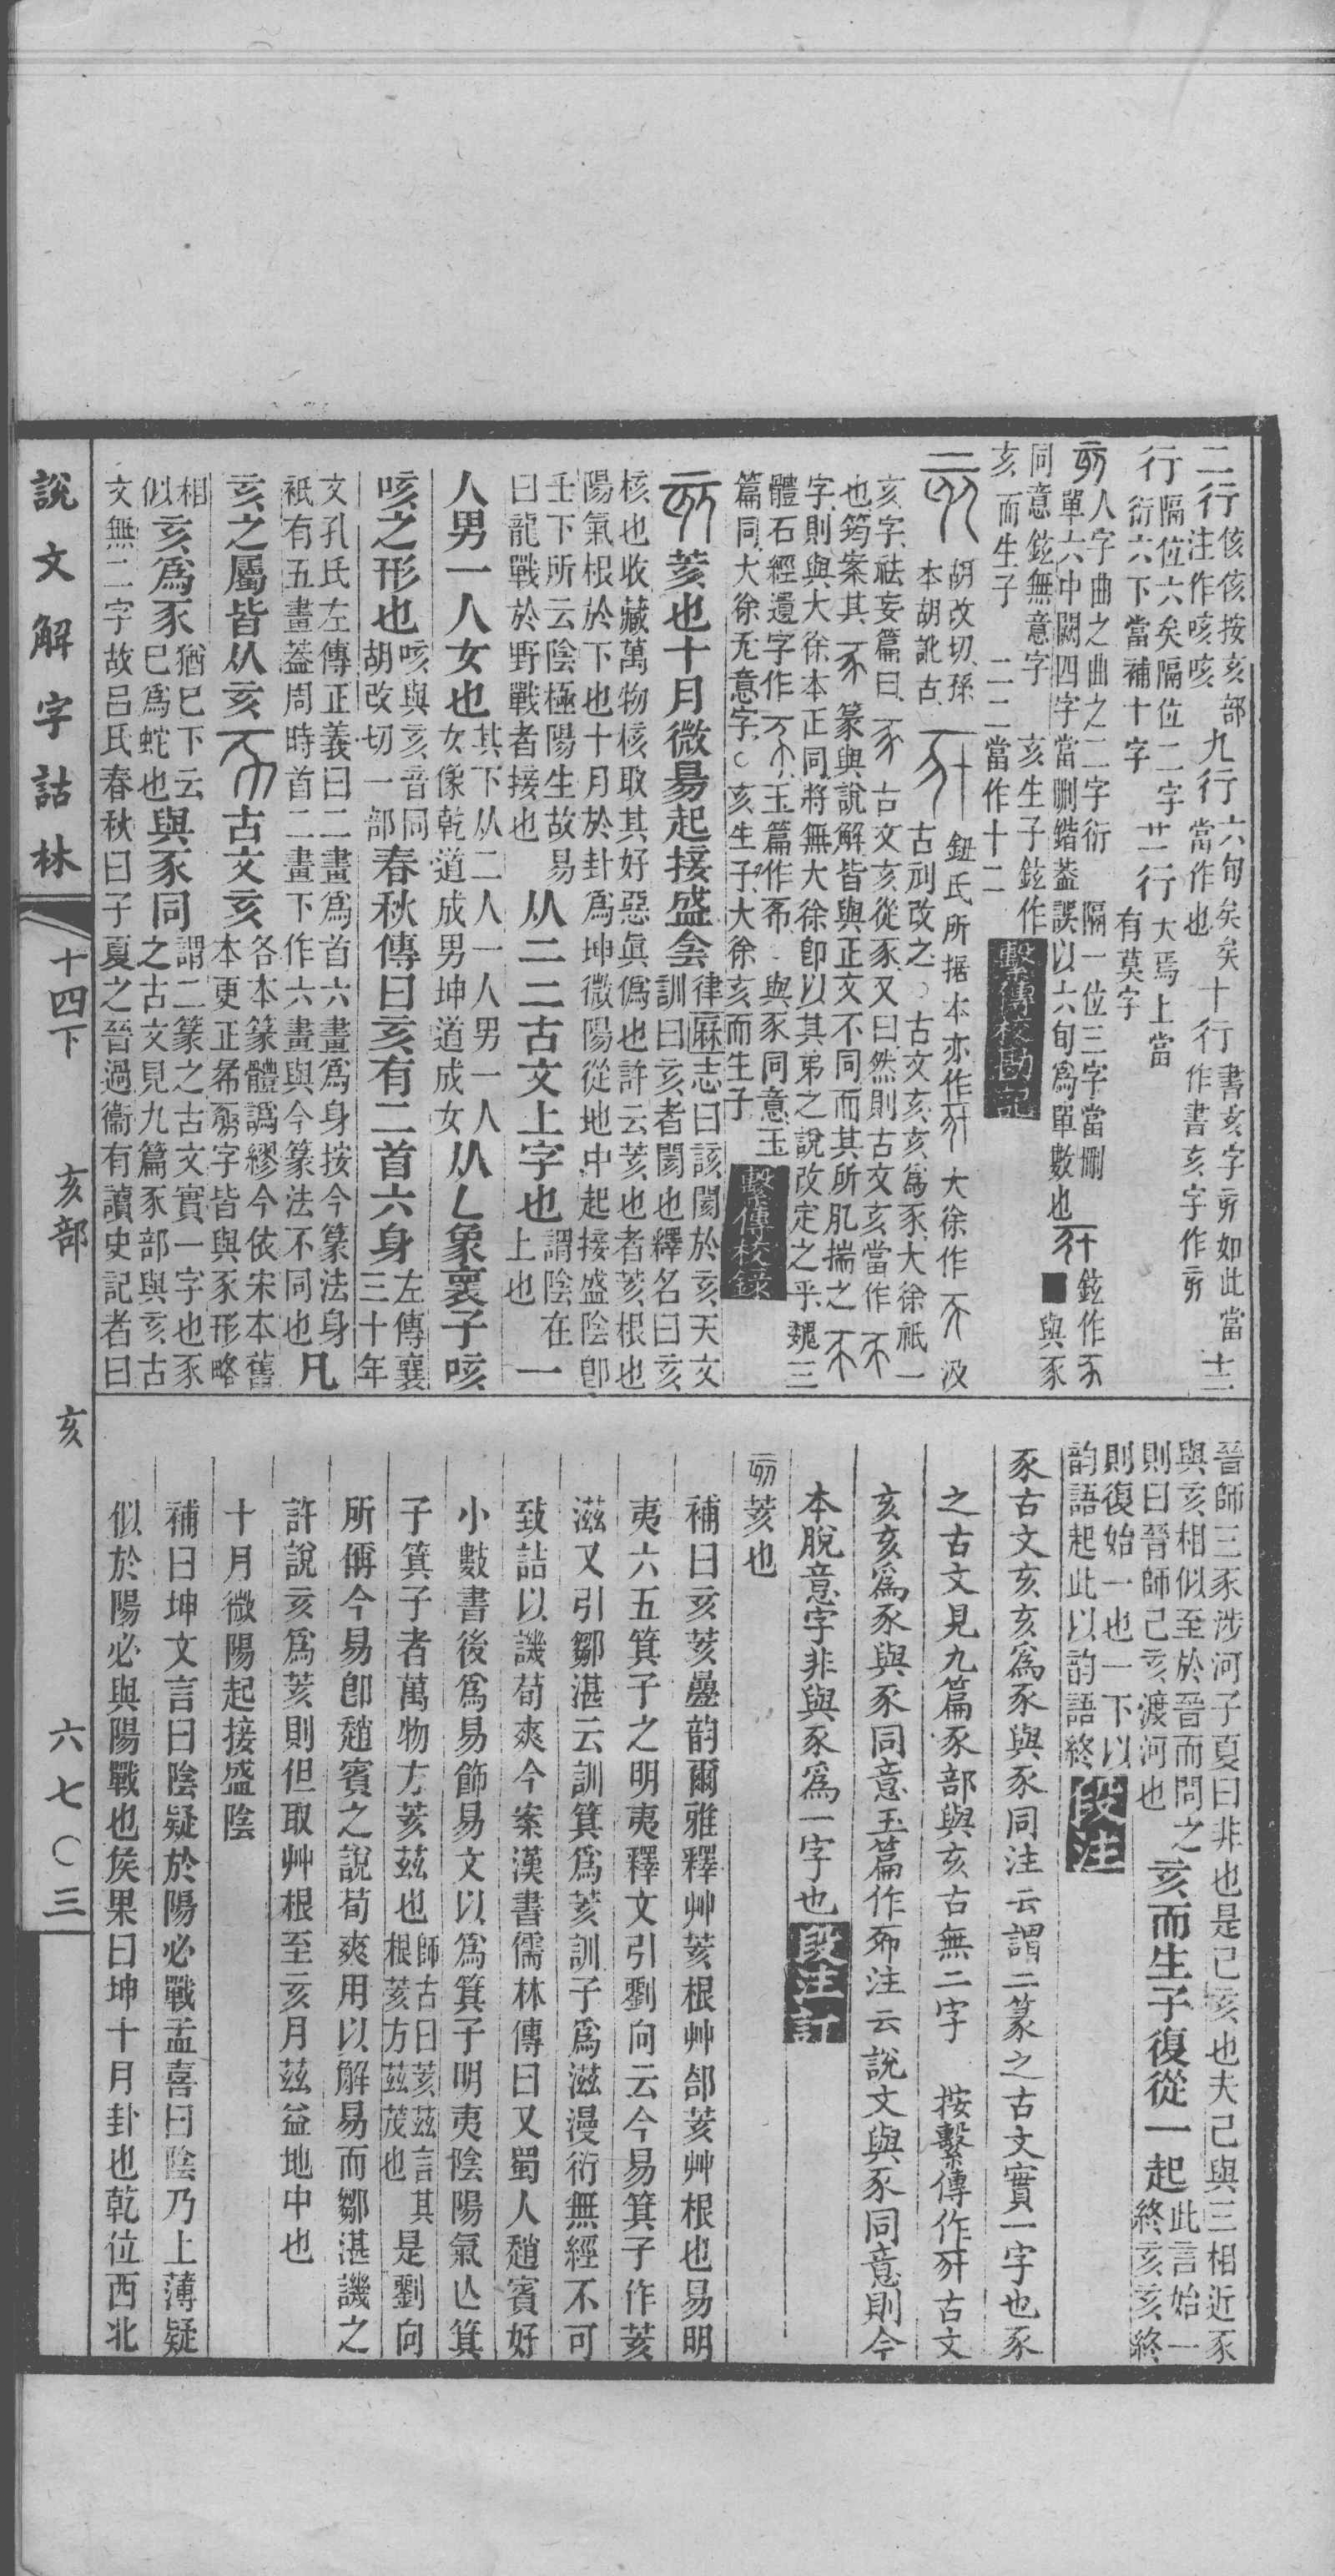 二行侅侅按亥部注作咳咳九行六旬矣矣當作也十行書亥字如此當作書亥字作十三
行隔位六矣隔位二字衍六下當補十字廿一行大焉上當有莫字
人字曲之曲之二字衍隔一位三字當刪單六中闕四字當刪鍇葢誤以六旬爲單數也鉉作與豕
同意鉉無意字亥生子鉉作亥而生子二二當作十二繫傳校勘記
胡改切孫本胡訛古鈕氏所据本亦作大徐作汲古剜改之古文亥亥爲豕大徐祇一
亥字祛妄篇曰古文亥從豕又曰然則古文亥當作
也筠案其篆與說解皆與正文不同而其所肊揣之
字則與大徐本正同將無大徐卽以其弟之說改定之乎魏三
體石經遺字作玉篇作與豕同意玉
篇同大徐无意字亥生子大徐亥而生子繫傳校錄
荄也十月微昜起接盛侌律厤志曰該閡於亥天文訓曰亥者閡也釋名曰亥
核也收藏萬物核取其好惡眞僞也許云荄也者荄根也
陽氣根於下也十月於卦爲坤微陽從地中起接盛陰卽
壬下所云陰極陽生故易曰龍戰於野戰者接也从二二古文上字也謂陰在上也一
人男一人女也其下从二人一人男一人女像乾道成男坤道成女从乚象褱子咳
咳之形也咳與亥音同胡改切一部春秋傳曰亥有二首六身左傳襄三十年
文孔氏左傳正義曰二畫爲首六畫爲身按今篆法身
祇有五畫葢周時首二畫下作六畫與今篆法不同也凡
亥之屬皆从亥古文亥各本篆體譌繆今依宋本舊本更正字皆與豕形略
相似亥爲豕猶巳下云巳爲蛇也與豕同謂二篆之古文實一字也豕之古文見九篇豕部與亥古
文無二字故呂氏春秋曰子夏之晉過衞有讀史記者曰
晉師三豕涉河子夏曰非也是己亥也夫己與三相近豕
與亥相似至於晉而問之則曰晉師己亥渡河也亥而生子復從一起此言始一終亥亥終
則復始一也一下以韵語起此以韵語終段注
豕古文亥亥爲豕與豕同注云謂二篆之古文實一字也豕
之古文見九篇豕部與亥古無二字　按繫傳作古文
亥亥爲豕與豕同意玉篇作注云說文與豕同意則今
本脫意字非與豕爲一字也段注訂
荄也
補曰亥荄疊韵爾雅釋艸荄根艸郃荄艸根也易明
夷六五箕子之明夷釋文引劉向云今易箕子作荄
滋又引鄒湛云訓箕爲荄訓子爲滋漫衍無經不可
致詰以譏荀爽今案漢書儒林傳曰又蜀人趙賓好
小數書後爲易飾易文以爲箕子明夷陰陽氣亾箕
子箕子者萬物方荄茲也師古曰荄茲言其根荄方茲茂也是劉向
所偁今易卽趙賓之說荀爽用以解易而鄒湛譏之
許說亥爲荄則但取艸根至亥月茲益地中也
十月微陽起接盛陰
補曰坤文言曰陰疑於陽必戰孟喜曰陰乃上薄疑
似於陽必與陽戰也侯果曰坤十月卦也乾位西北
說文解字詁林　十四下　亥部　亥　六七〇三